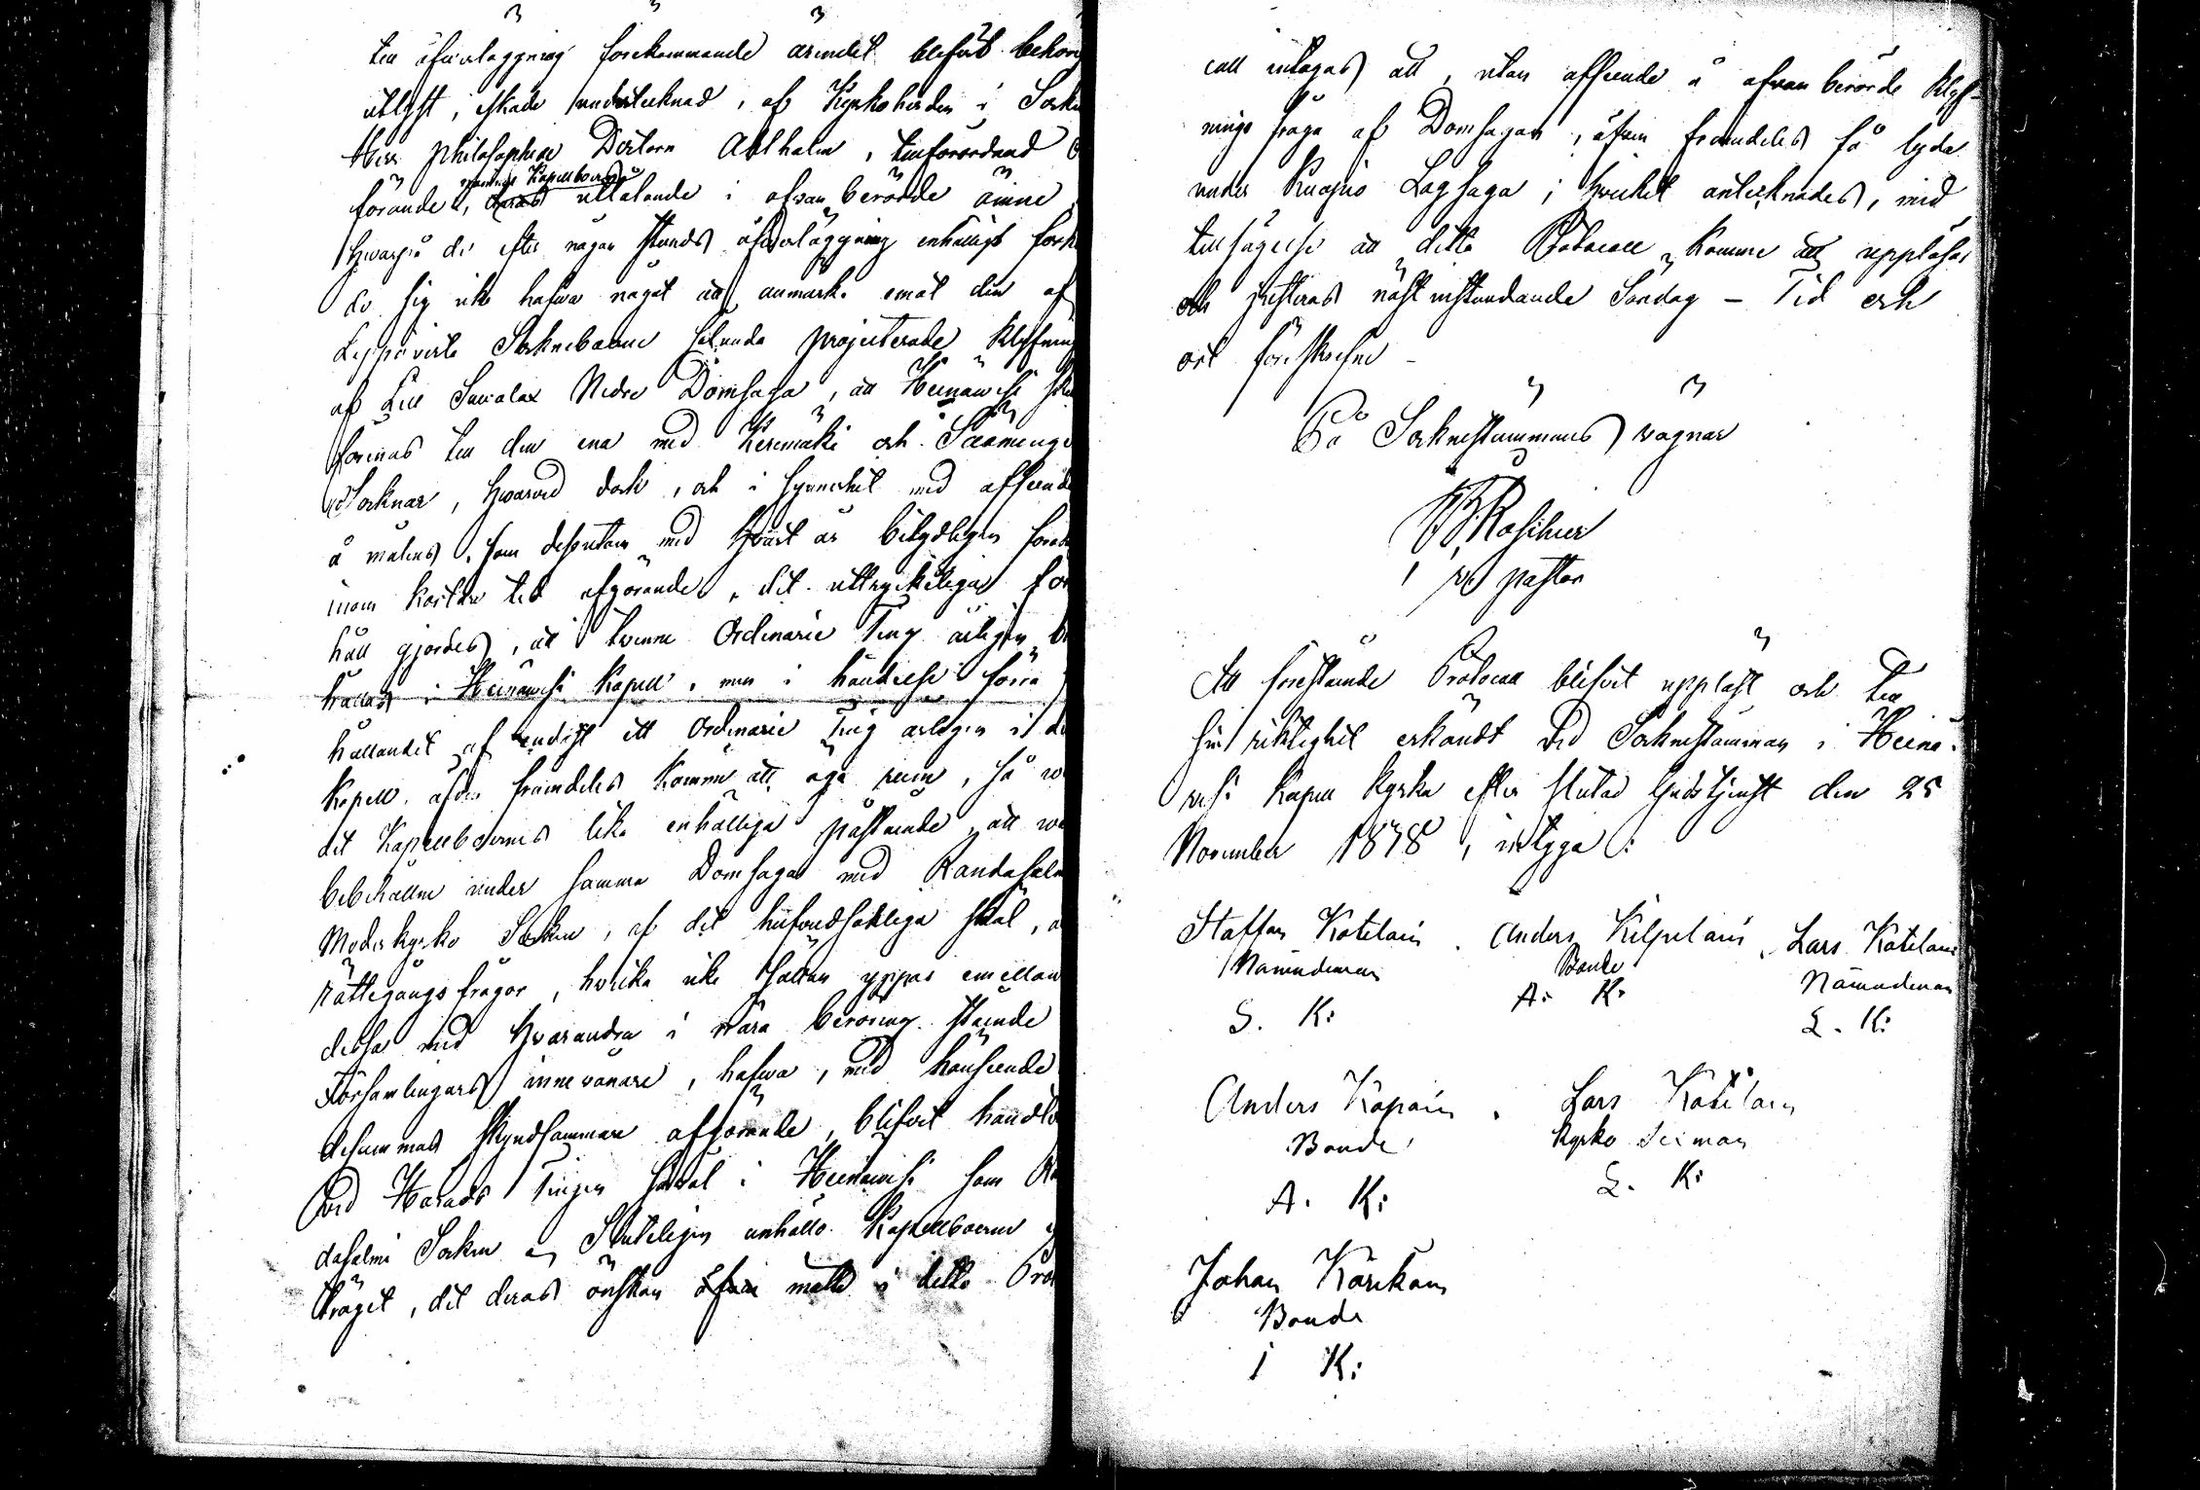 till öfverläggning förekommande ärendet blifvit behöri
utlyst, äskade undertecknad, af Kyrkoherden i Sock
Herr Philosophiæ Doctorn Ahlholm, tillförordnad
samtlige Kapellboernes
förande, deras utlåtande i ofvan berörde ämne
hvarpå de efter någon stunds öfverläggning enhälligt förk
de sig icke hafva något att anmärka emot den af
Leppävirta Sockneboerne sålunda projecterade klyfning
af Lill Savolax Nedre Domsaga, att Heinäwesi sku
förenas till den ena med Kerimäki och Sääminge
Socknar, hvarvid dock, och i synnerhet med afseende
å målens, som desputeras med hvart år betydligen
inom kortare tid afgörande, det uttryckeliga för
håll gjordes, att tvenne Ordinarie Ting årligen
hållas i Heinäwesi Kapell, men i händelse förra
hållandet af endast ett Ordinarie Ting årligen i
Kapell äfven framdeles komme att äga rum, så
det Kapellboernes lika enhälliga påstående att
bibehållne under samma Domsaga med Randasalm
Moderkyrko Socken, af det hufvudsakliga skäl,
rättegångs frågor, hvilka icke sällan yppas emellan
dessa med hvarandra i nära beröring stående
Församlingars innevånare, hafva, med hänseende
desammas skyndsammare afgörande, blifvit handla
vid Härads Tingen såväl i Heinäwesi som Ran
dasalmi Socken. Sluteligen anhöllo Kapellboerne
träget, det deras önskan äfven måtte i detta Proto
coll intagas att, utan afseende å ofvanberörde klyf-
nings fråga af Domsagan, äfven framdeles få lyda
under Kuopio Lagsaga; hvilket antecknades, med
tillsägelse att detta Protocoll komme att uppläsas
och justeras nästinstundande Söndag – Tid och
ort föreskrefne –
På Sockenstämmans vägnar
pastor
Att förestående Protocoll blifvit uppläst och till
sin riktighet erkändt vid Sockenstämman i Heinä-
wesi Kapell kyrka efter slutad Gudstjenst den 25
November 1838, intyga:
Staffan Kotilain . Anders Kilpeläin . Lars Kotilain
Nämndeman Bonde Nämndeman
S. K: A. K: L. K:
Anders Kopoin . Lars Kotilain
Bonde Kyrko
A. K: L. K:
Johan Kärkäin
Bonde
J K: